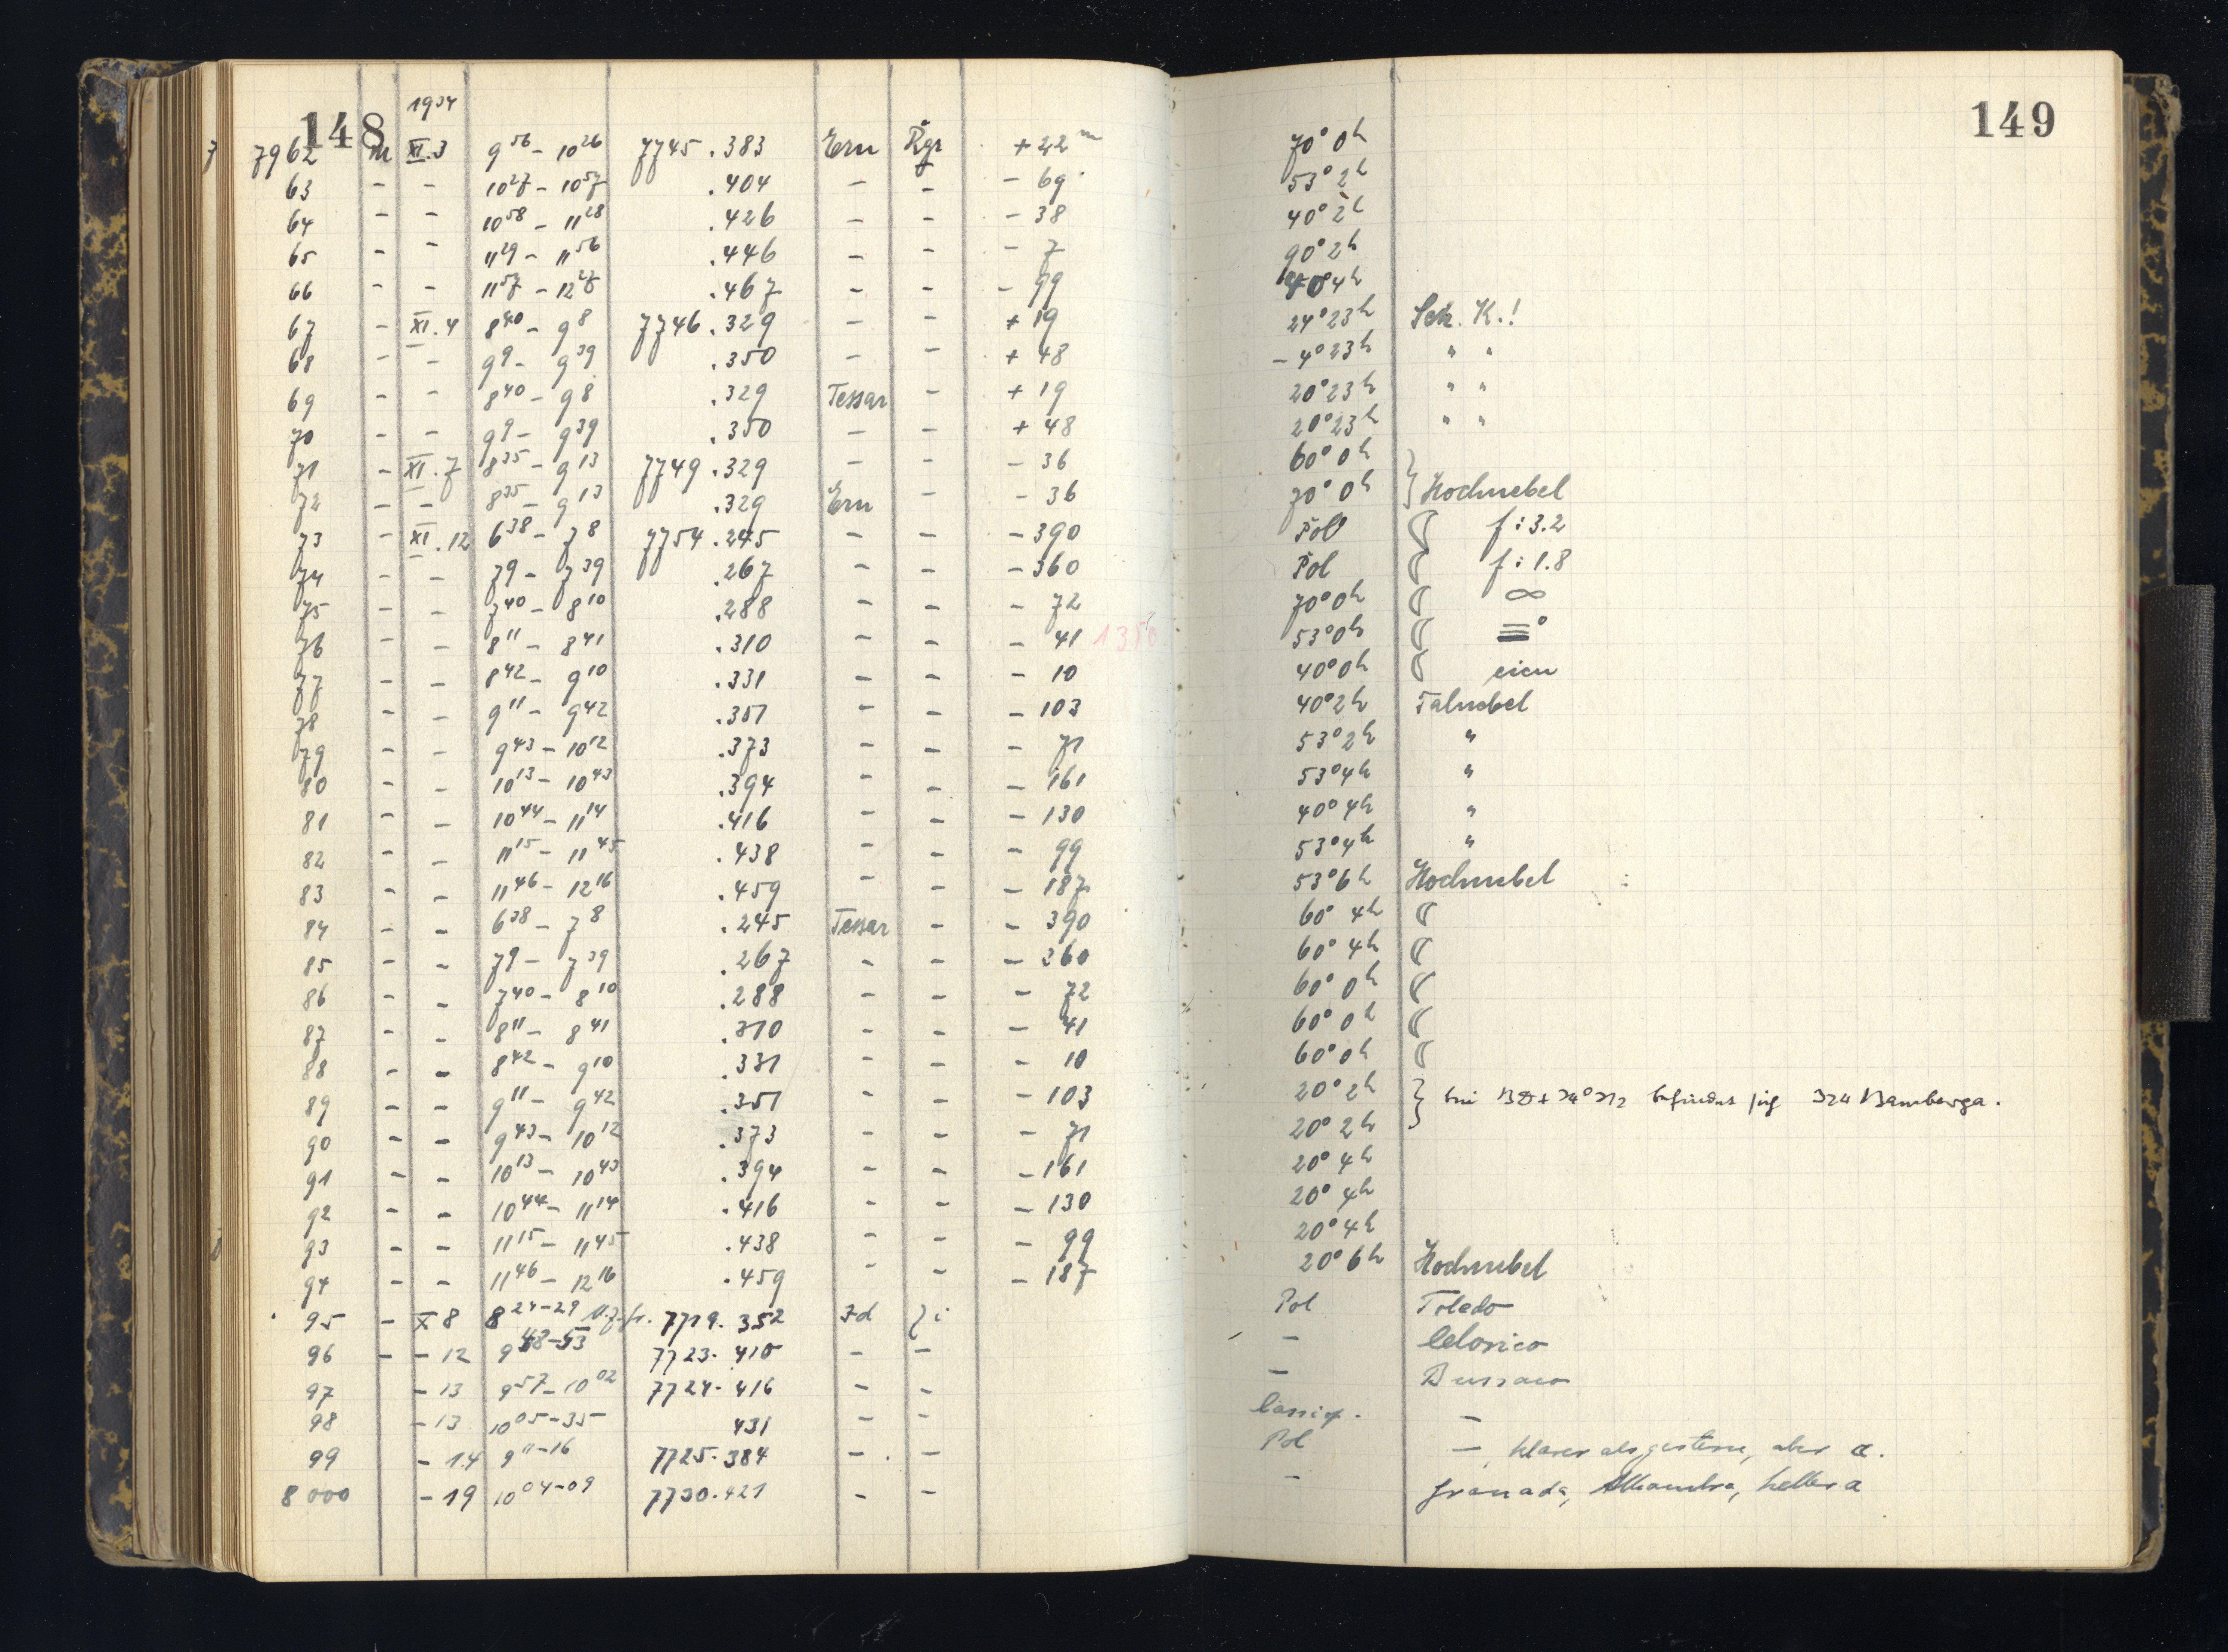 148 1934 149
7962 m XI.3 9 56 - 10 26 7745.383 Ern Rgr +22 m 70° 0h
63 - - 10 27 - 10 57 .404 - - - 69 53° 2h
64 - - 10 58 - 11 28 .426 - - - 38 40° 2h
65 - - 11 29 - 11 56 .446 - - - 7 90° 2h
66 - - 11 57 - 12 27 .467 - - - 99 4h
67 - XI.4 8 40 - 9 8 7746.329 - - + 19 24° 23h Sch. K.!
68 - - 9 9 - 9 39 .350 - - + 48 - 4° 23h " "
69 - - 8 40 - 9 8 .329 Tessar - + 19 20° 23h " "
70 - - 9 9 - 9 39 .350 - - + 48 20° 23h " "
71 - XI.7 8 35 - 9 13 7749.329 - - - 36 60° 0h
72 - - 8 35 - 9 13 .329 Ern - - 36 70° 0h } Hochnebel
73 - XI.12 6 38 - 7 8 7754.245 - - - 390 Pol ☾ f:3.2
74 - - 7 9 - 7 39 .267 - - - 360 Pol ☾ f:1.8
75 - - 7 40 - 8 10 .288 - - - 72 70° 0h ☾ ∞
76 - - 8 11 - 8 41 .310 - - - 41 53° 0h ☾ ≡°
77 - - 8 42 - 9 10 .331 - - - 10 40° 0h ☾
78 - - 9 11 - 9 42 .351 - - - 103 40° 2h Talnebel
79 - - 9 43 - 10 12 .373 - - - 71 53° 2h "
80 - - 10 13 - 10 43 .394 - - - 161 53° 4h "
81 - - 10 44 - 11 14 .416 - - - 130 40° 4h "
82 - - 11 15 - 11 45 .438 - - - 99 53° 4h "
83 - - 11 46 - 12 16 .459 - - - 187 53° 6h Hochnebel
84 - - 6 38 - 7 8 .245 Tessar - - 390 60° 4h ☾
85 - - 7 9 - 7 39 .267 - - - 360 60° 4h ☾
86 - - 7 40 - 8 10 .288 - - - 72 60° 0h ☾
87 - - 8 11 - 8 41 .310 - - - 41 60° 0h ☾
88 - - 8 42 - 9 10 .331 - - - 10 60° 0h ☾
89 - - 9 11 - 9 42 .351 - - - 103 20° 2h } bei BD+24°212 befindet sich 324 Bamberga.
90 - - 9 43 - 10 12 .373 - - - 71 20° 2h
91 - - 10 13 - 10 43 .394 - - - 161 20° 4h
92 - - 10 44 - 11 14 .416 - - - 130 20° 4h
93 - - 11 15 - 11 45 .438 - - - 99 20° 4h
94 - - 11 46 - 12 16 .459 - - - 187 20° 6h Hochnebel
95 - X 8 8 24-29 7719.352 Zd i Pol Toledo
96 - - 12 9 48-53 7723.410 - - - Celorico
97 - 13 9 57 - 10 02 7724.416 - - - Bussaco
98 - 13 10 05-35 431 - - Cassiop. -
99 - 14 9 11-16 7725.384 - - Pol - , klarer als gestern, aber a.
8000 - 19 10 04-09 7730.421 - - - Granada, Alhambra, hellera